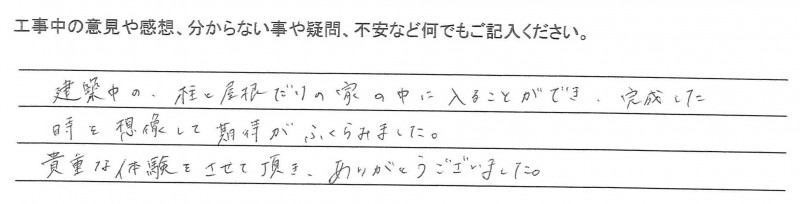 工事中の意見や感想、分からない事や疑問、不安など何でもご記入ください。
建築中の、柱と屋根だけの家の中に入ることができ、完成した
時を想像して期待がふくらみました。
貴重な体験をさせて頂き、ありがとうございました。